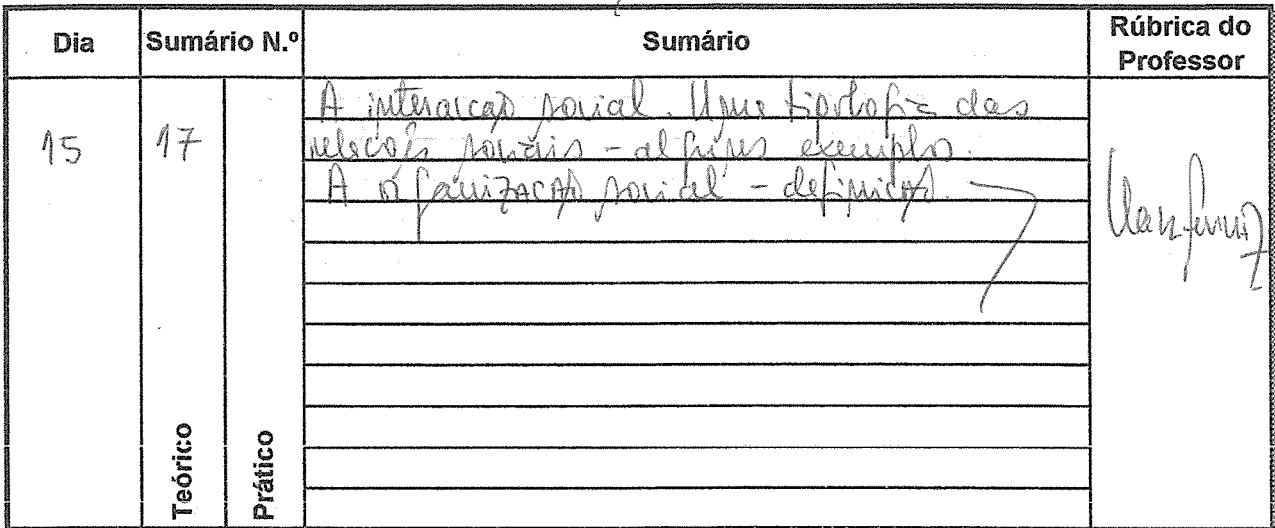 Dia Sumário N.º Sumário Rúbrica do Professor
15 17 A interacção social. Uma tipologia das
relações sociais - alguns exemplos.
A organização social - definição.
Teórico Prático